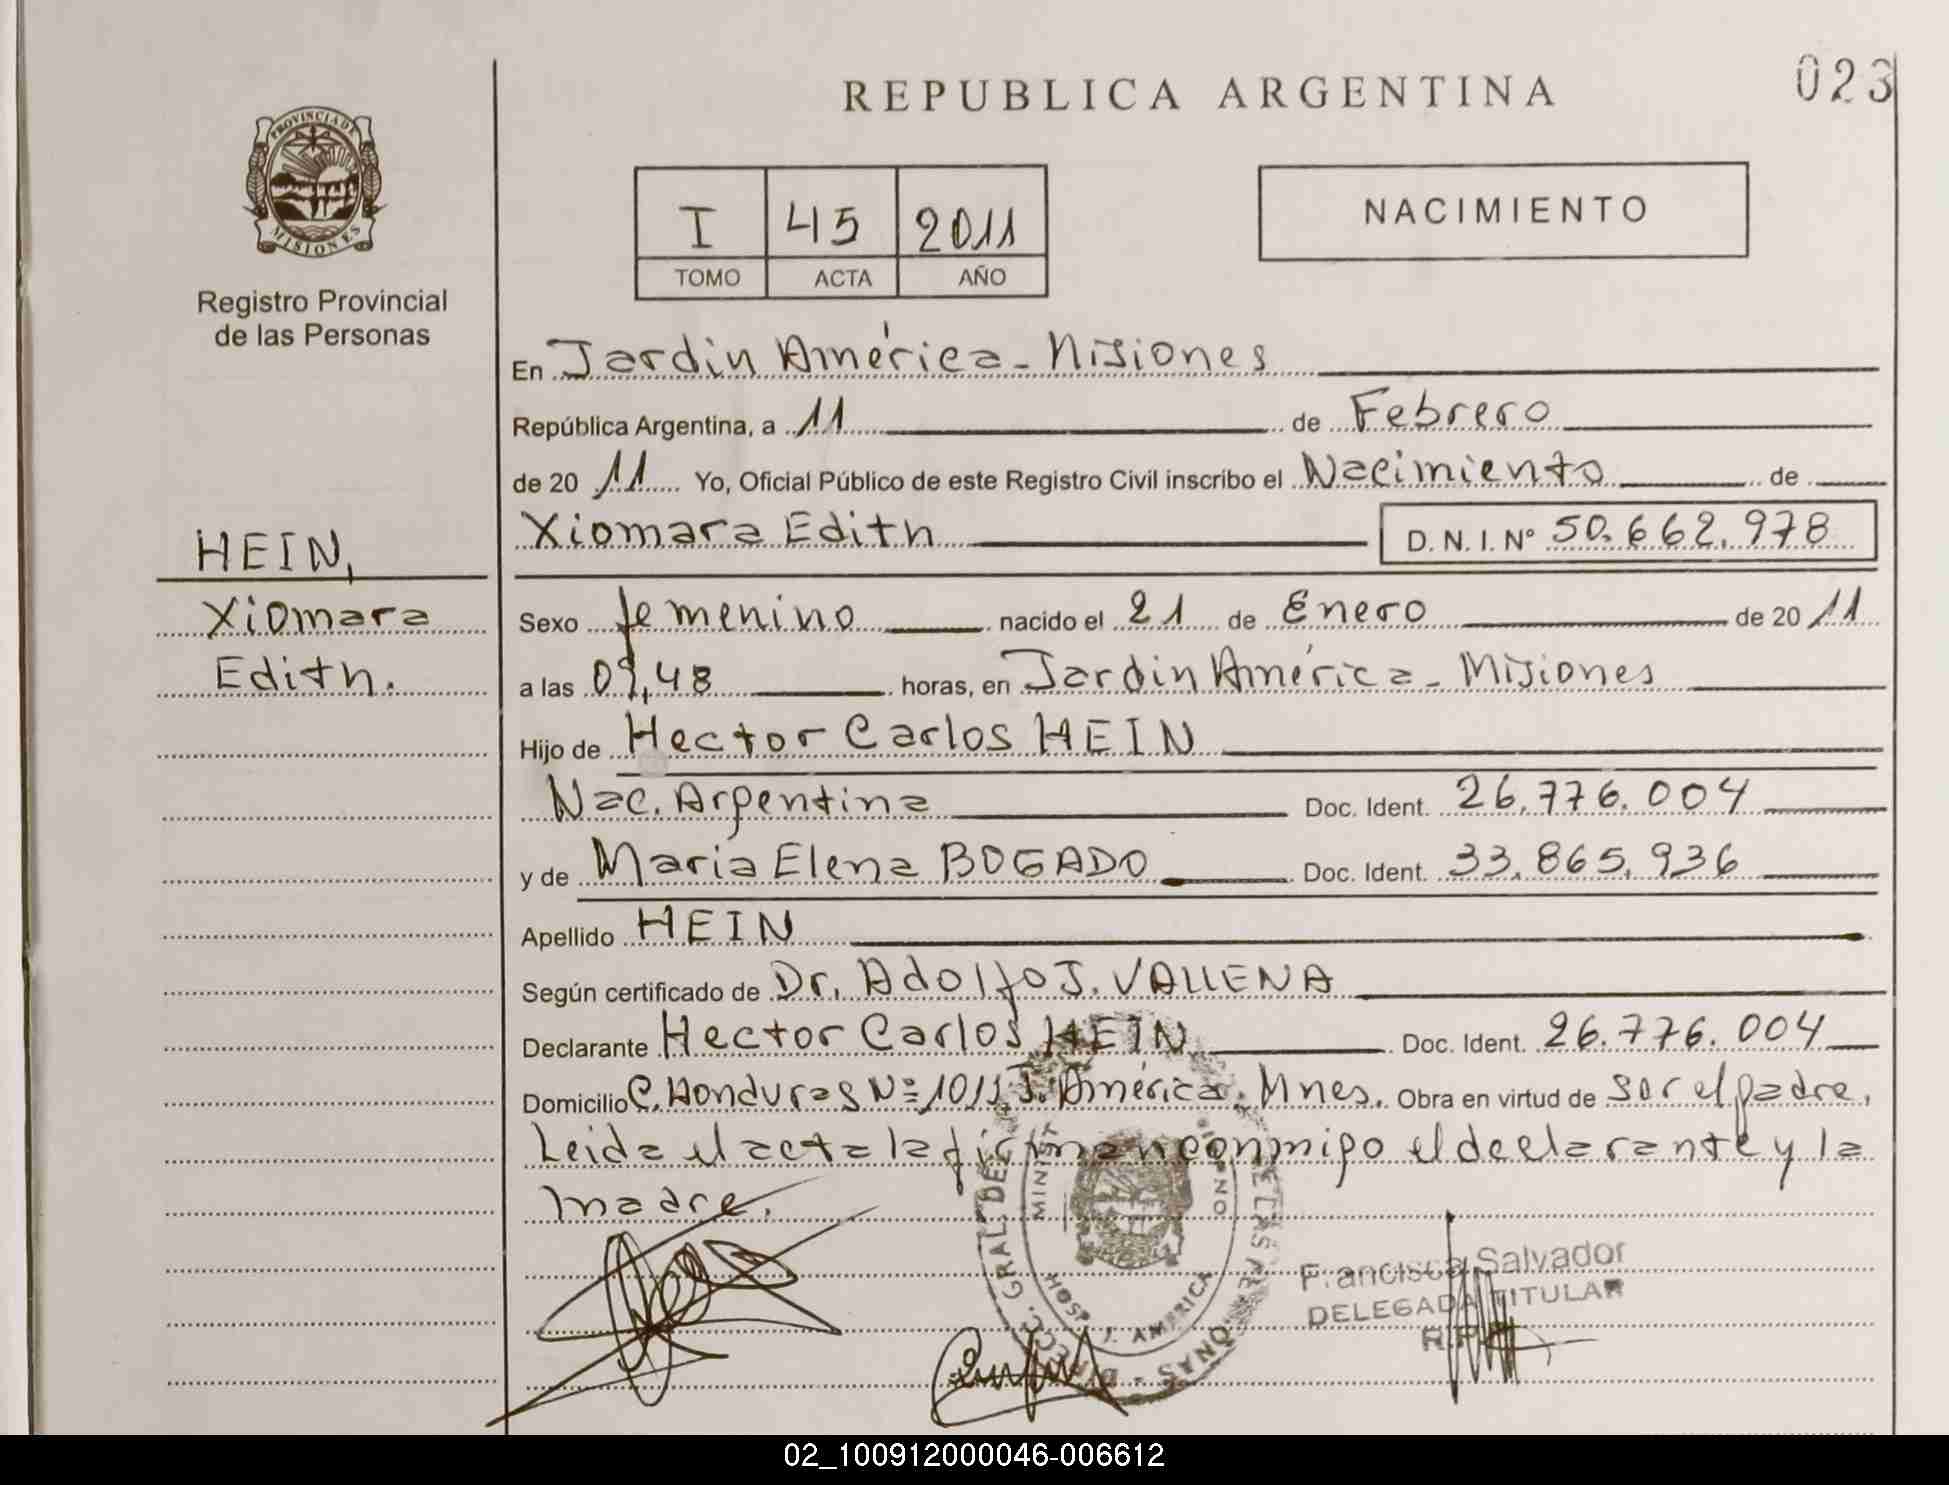 REPUBLICA ARGENTINA
023
PROVINCIA DE MISIONES
Registro Provincial
de las Personas
I 45 2011
TOMO ACTA AÑO
NACIMIENTO
En Jardin América - Misiones
República Argentina, a 11 de Febrero
de 20 11 Yo, Oficial Público de este Registro Civil inscribo el Nacimiento de
Xiomara Edith D. N. I. Nº 50.662.978
HEIN,
Xiomara
Edith.
Sexo femenino nacido el 21 de Enero de 20 11
a las 09,48 horas, en Jardin América - Misiones
Hijo de Hector Carlos HEIN
Nac. Argentina Doc. Ident. 26.776.004
y de Maria Elena BOGADO Doc. Ident. 33.865.936
Apellido HEIN
Según certificado de Dr. Adolfo J. VALLENA
Declarante Hector Carlos HEIN Doc. Ident. 26.776.004
Domicilio C. Honduras Nº 1011 J. América. Mnes. Obra en virtud de ser el padre.
Leida el acta la firman conmigo el declarante y la
madre.
Francisca Salvador
DELEGADA TITULAR
02_100912000046-006612